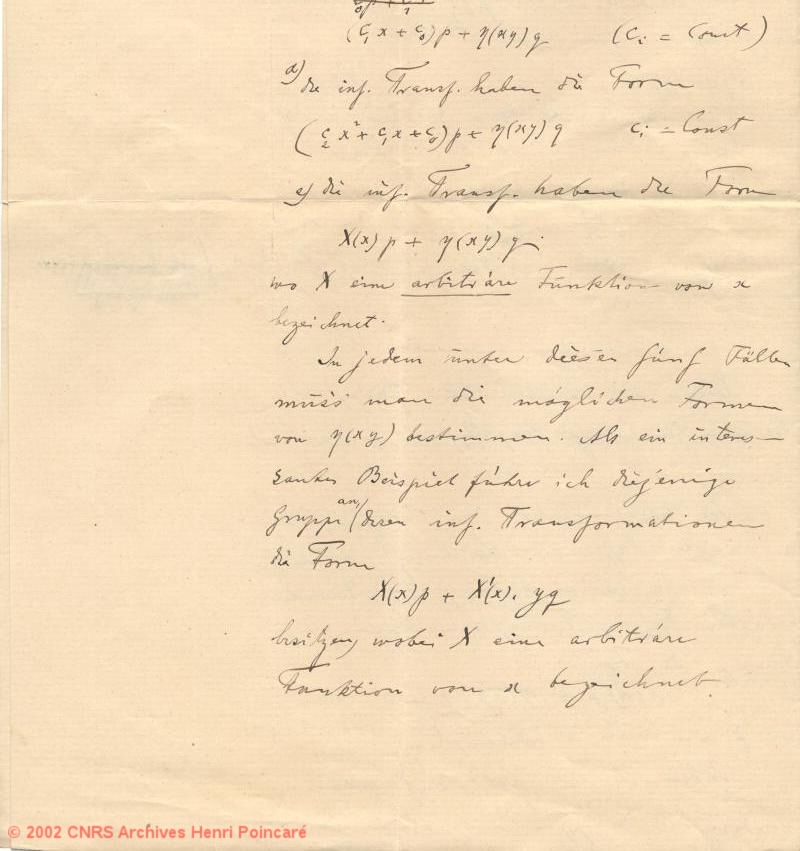 (c₁x + c₀)p + η(xy)q (cᵢ = Const)
d) die inf. Transf. haben die Form
(c₂x² + c₁x + c₀)p + η(xy)q cᵢ = Const
e) die inf. Transf. haben die Form
X(x)p + η(xy)q.
wo X eine arbiträre Funktion von x
bezeichnet.
In jedem unter diesen fünf Fällen
muss man die möglichen Formen
von η(xy) bestimmen. Als ein interes-
santes Beispiel führe ich diejenige
Gruppe an, deren inf. Transformationen
die Form
X(x)p + X'(x).yq
besitzen, wobei X eine arbiträre
Funktion von x bezeichnet.
© 2002 CNRS Archives Henri Poincaré